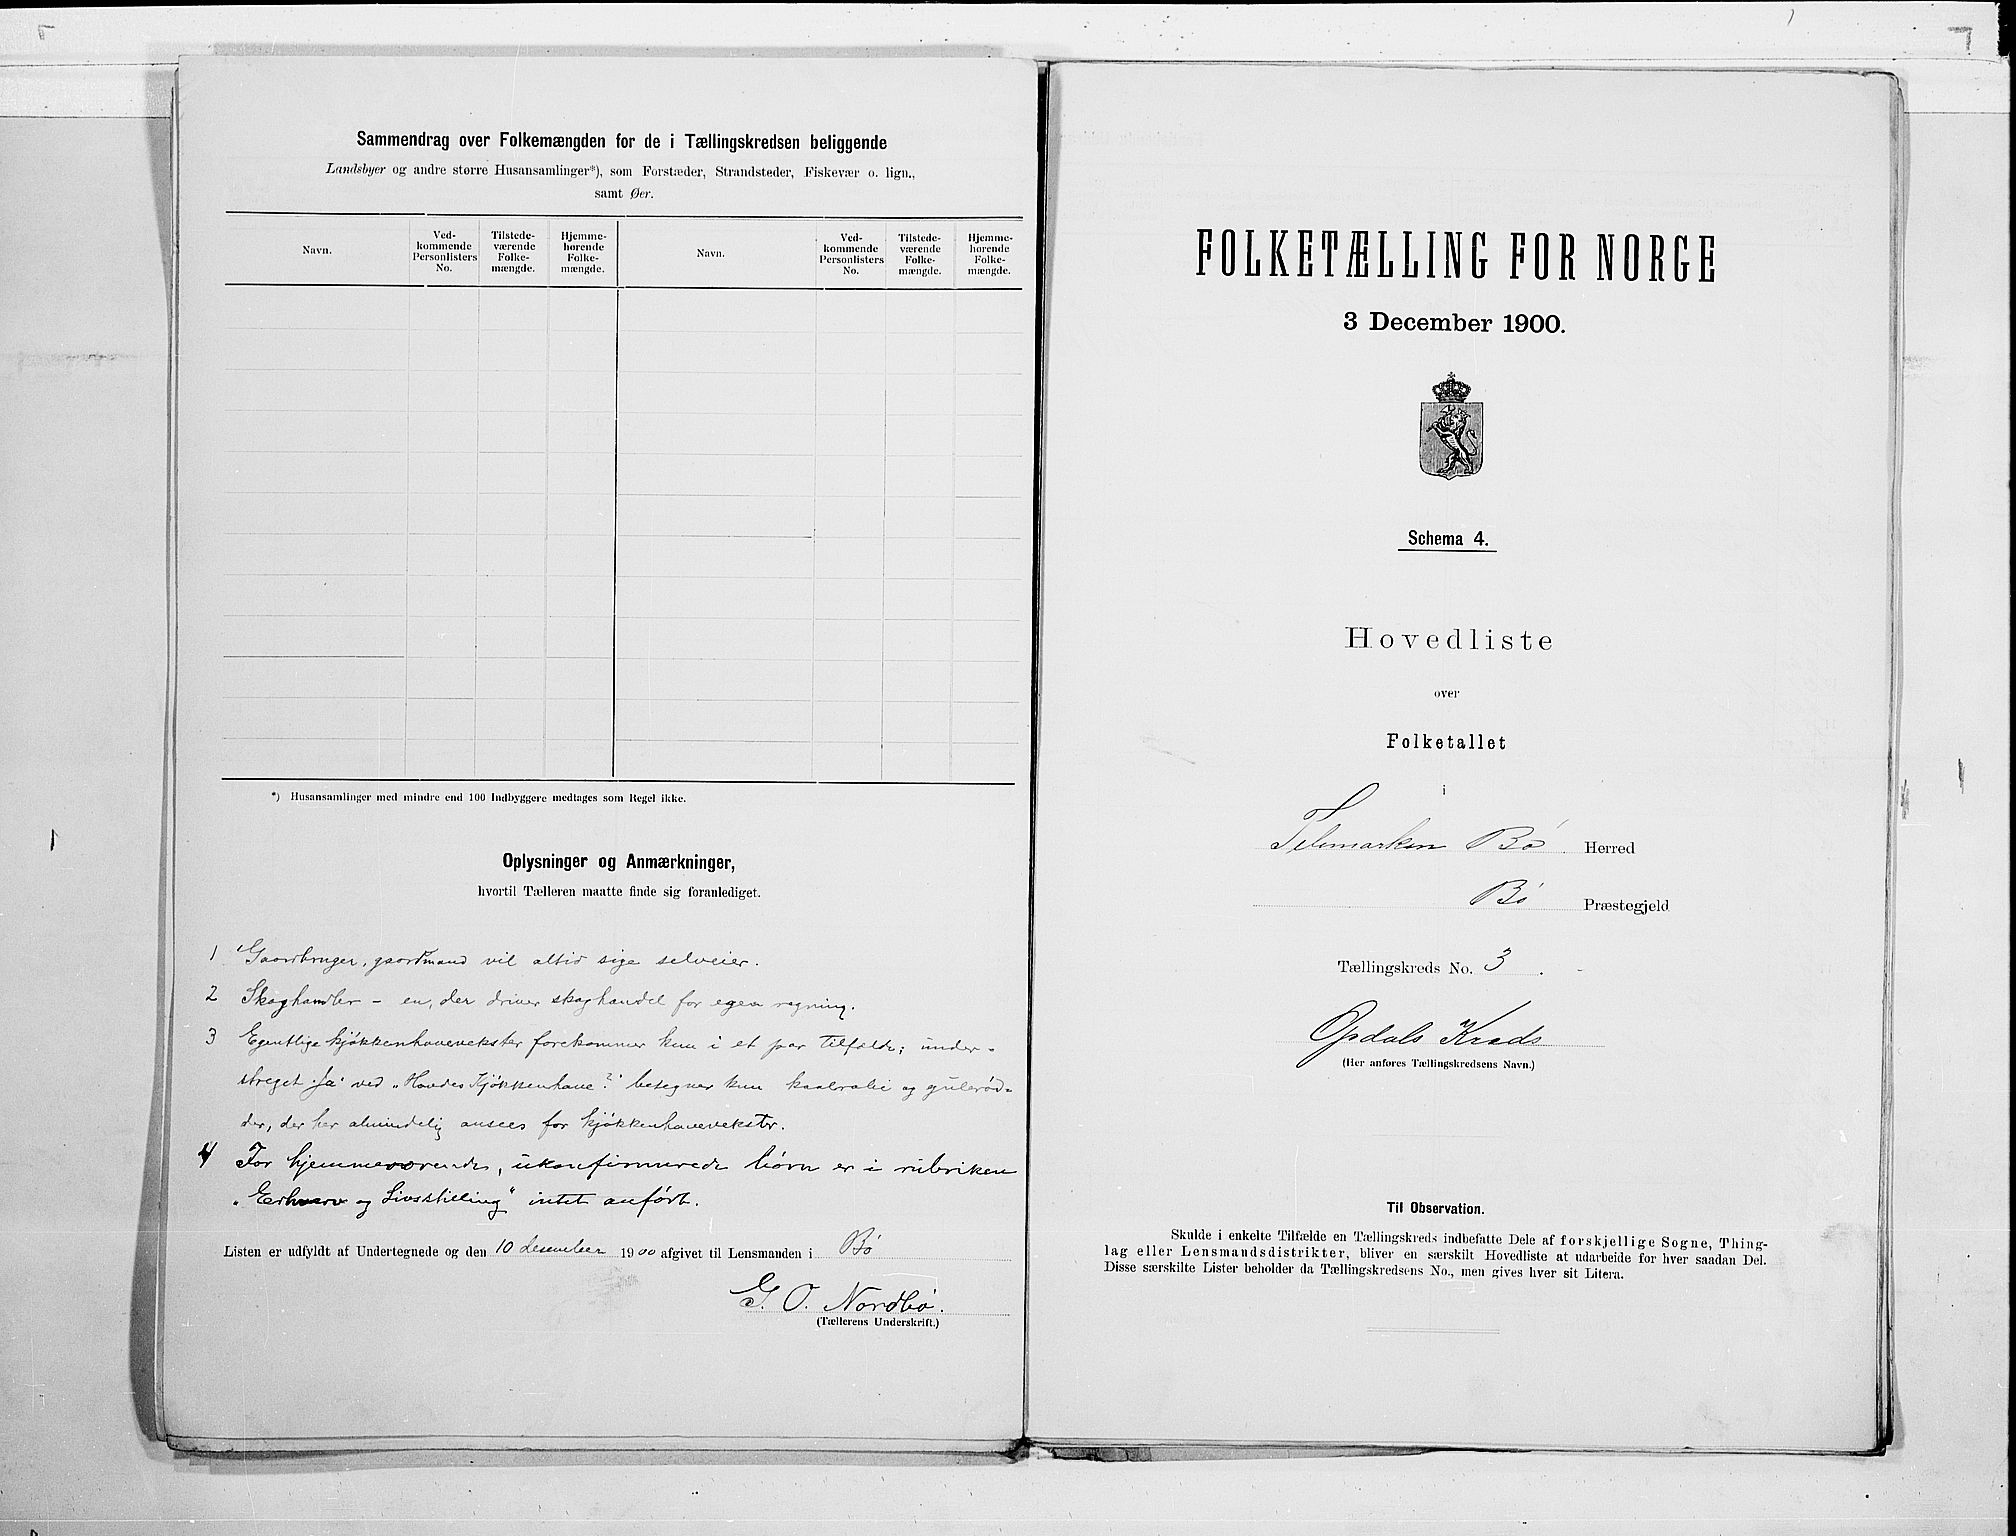 Sammendrag over Folkemængden for de i Tællingskredsen beliggende
Landsbyer og andre større Husansamlinger*), som Forstæder, Strandsteder, Fiskevær o. lign.,
samt Øer.
Navn.
Ved-
kommende
Personlisters
No.
Tilstede-
værende
Folke-
mængde.
Hjemme-
hørende
Folke-
mængde.
Navn.
Ved-
kommende
Personlisters
No.
Tilstede-
værende
Folke-
mængde.
Hjemme-
hørende
Folke-
mængde.
*) Husansamlinger med mindre end 100 Indbyggere medtages som Regel ikke.
Oplysninger og Anmærkninger,
hvortil Tælleren maatte finde sig foranlediget.
1 Gaardbruger, gaardmand vil altid sige selveier.
2 Skoghandler – en, der driver skoghandel for egen regning.
3 Egentlige kjøkkenhavevekster forekommer kun i et par tilfælde; under-
streget "Ja" ved "Havdes Kjøkkenhave?" betegner kun kaalrabi og gulerød-
der, der her almindelig ansees for kjøkkenhavevekster.
4 For hjemmeværende, ukonfirmerede børn er i rubriken
"Erhverv og Livsstilling" intet anført.
Listen er udfyldt af Undertegnede og den 10 desember 1900 afgivet til Lensmanden i Bø
G. O. Nordbø.
(Tællerens Underskrift.)
FOLKETÆLLING FOR NORGE
3 December 1900.
Schema 4.
Hovedliste
over
Folketallet
i
Telemarken Bø Herred
Bø Præstegjeld
Tællingskreds No. 3.
Opdals Kreds
(Her anføres Tællingskredsens Navn.)
Til Observation.
Skulde i enkelte Tilfælde en Tællingskreds indbefatte Dele af forskjellige Sogne, Thing-
lag eller Lensmandsdistrikter, bliver en særskilt Hovedliste at udarbeide for hver saadan Del.
Disse særskilte Lister beholder da Tællingskredsens No., men gives hver sit Litera.